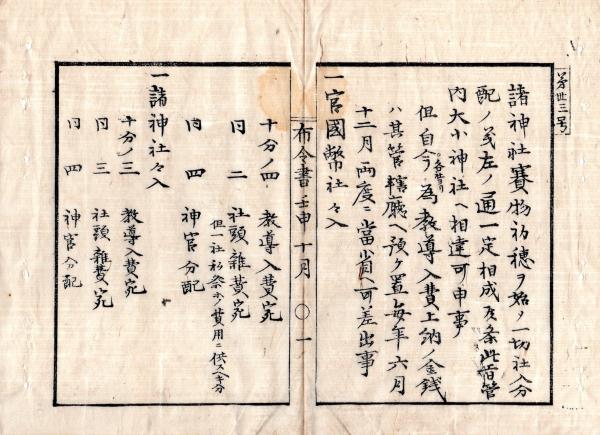 第卅三号
諸神社賽物初穂ヲ始メ一切社入分
配ノ義左ノ通一定相成候条此旨管
内大小神社ヘ相達可申事
但自今為教導入費上納ノ金銭
ハ其管轄庁ヘ預ケ置毎年六月
十二月両度ニ当省ヘ可差出事
一官國幣社々入
布令書壬申十月 〇一
十分ノ四 教導入費宛
同 二 社頭雜費宛
但一社私祭等ノ費用ニ供スヘキ分
同 四 神官分配
一諸神社々入
十分ノ三 教導入費宛
同 三 社頭雜費宛
同 四 神官分配